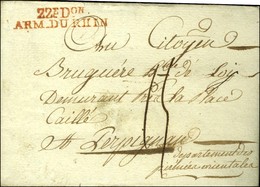 22E DON
ARM. DU RHIN
Au Citoyen
Bruguére
de Loi
Demeurant Près la Place
Caillé
A Perpignan
departement des
pirénées orientales